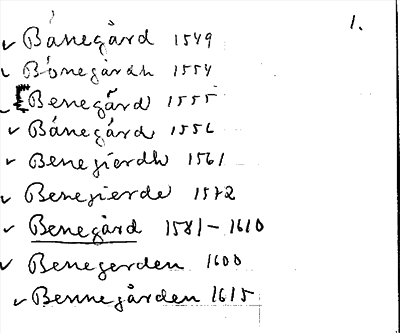 1.
✓ Bånegård 1549
✓ Bönegårdh 1554
✓ [Benegård 1555
✓ Bånegård 1556
✓ Benegierdh 1561
✓ Benegierde 1572
✓ Benegård 1581–1610
✓ Benegerden 1600
✓ Bennegården 1615